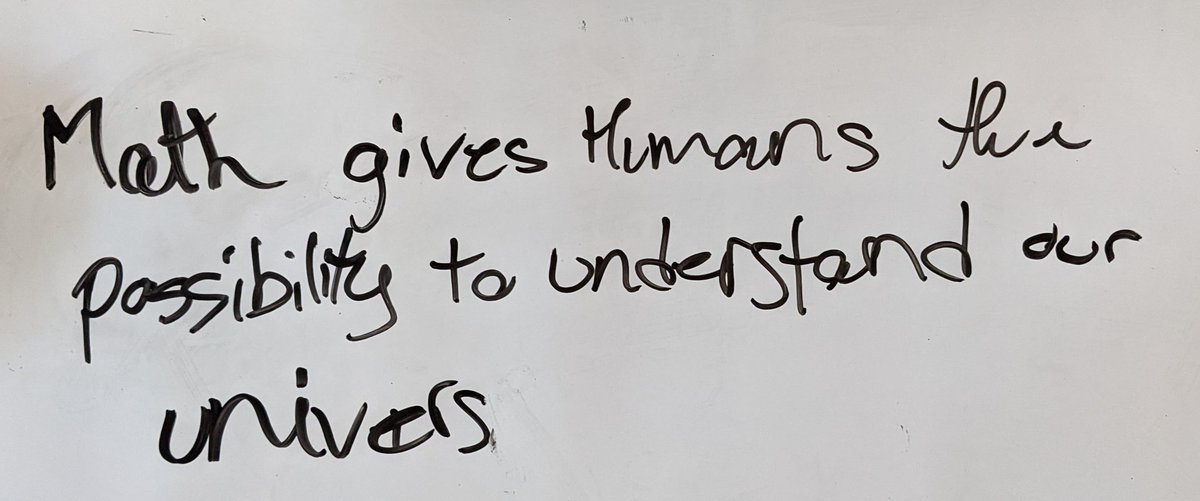 Math gives Humans the
possibility to understand our
univers